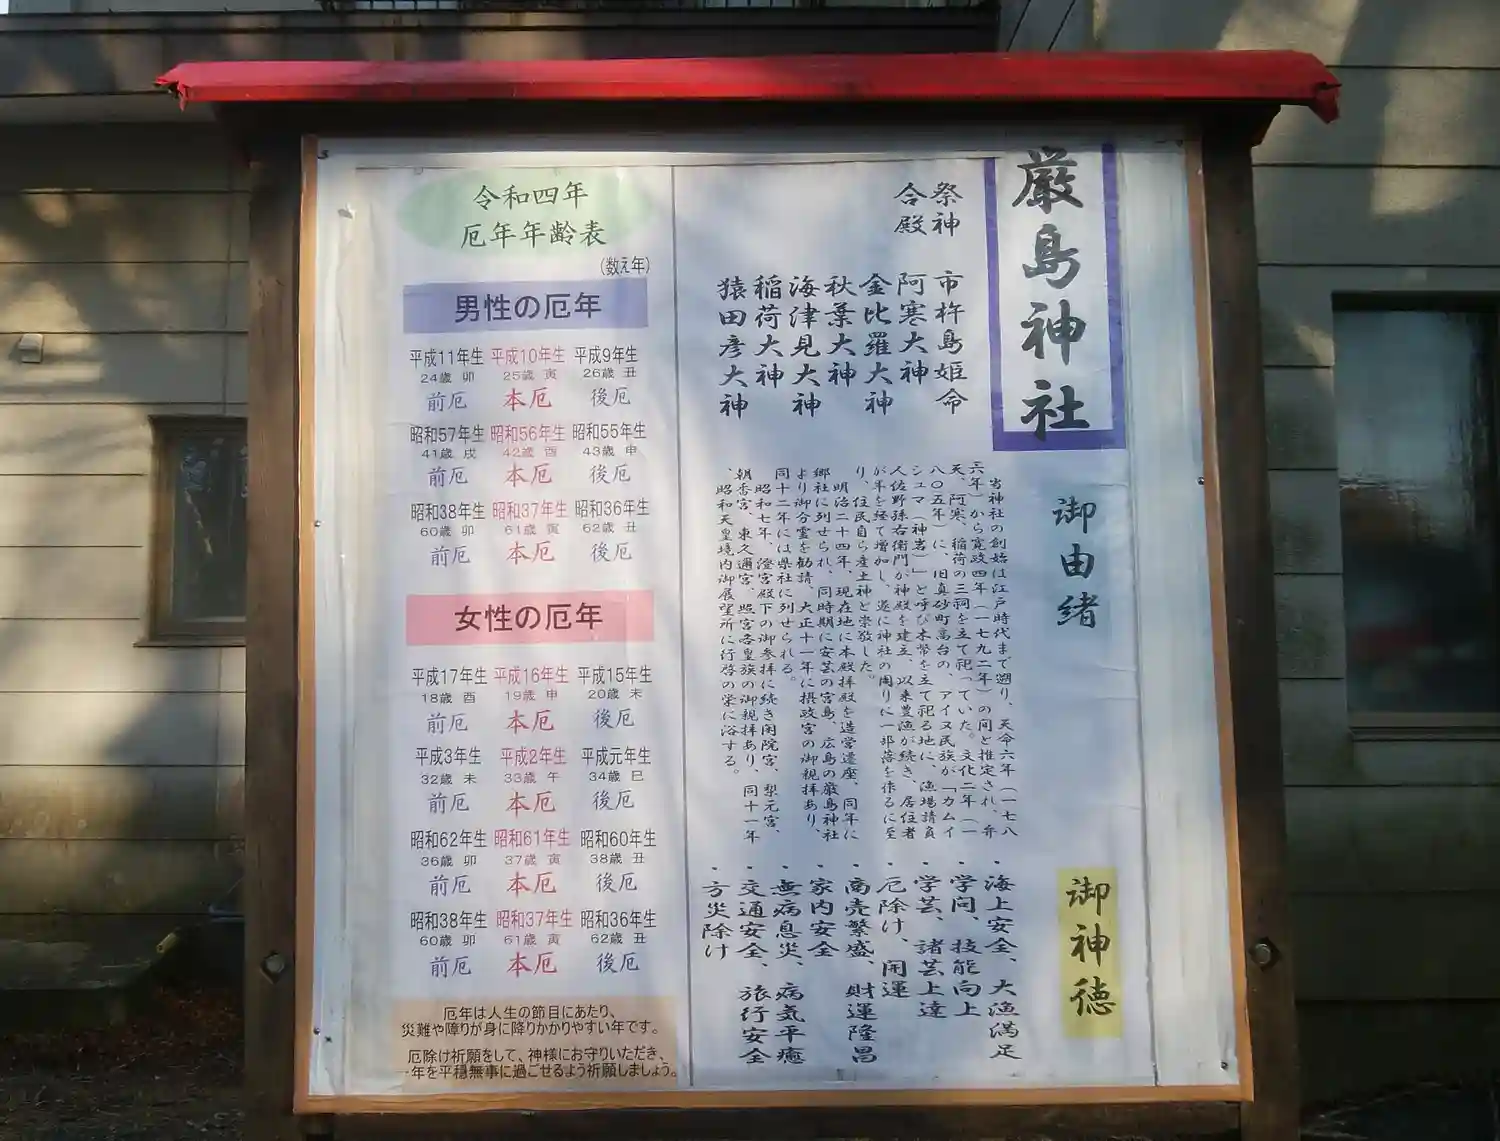 厳島神社
祭神 市杵島姫命
合殿 阿寒大神
金比羅大神
秋葉大神
海津見大神
稲荷大神
猿田彦大神
御由緒
当神社の創始は江戸時代まで遡り、天命六年(一七八
六年)から寛政四年(一七九二年)の間と推定され、弁
天、阿寒、稲荷の三祠を立て祀っていた。文化二年(一
八〇五年)に、旧真砂町高台の、アイヌ民族が「カムイ
シュマ(神岩)」と呼び木幣を立て祀る地に、漁場請負
人佐野孫右衛門が神殿を建立、以来豊漁が続き、居住者
が年を経て増加し、遂に神社の周りに一部落を作るに至
り、住民自ら産土神と崇敬した。
明治二十四年、現在地に本殿拝殿を造営遷座、同年に
郷社に列せられ、同時期に安芸の宮島、広島の厳島神社
より御分霊を勧請、大正十一年に摂政宮の御親拝あり、
同十二年には県社に列せられる。
昭和七年、澄宮殿下の御参拝に続き閑院宮、梨元宮、
朝香宮、東久邇宮、照宮各皇族の御親拝あり、同十一年
、昭和天皇境内御展望所に行啓の栄に浴する。
御神徳
・海上安全、大漁満足
・学問、技能向上
・学芸、諸芸上達
・厄除け、開運
・商売繁盛、財運隆昌
・家内安全
・無病息災、病気平癒
・交通安全、旅行安全
・方災除け
令和四年
厄年年齢表
(数え年)
男性の厄年
平成11年生 平成10年生 平成9年生
24歳 卯 25歳 寅 26歳 丑
前厄 本厄 後厄
昭和57年生 昭和56年生 昭和55年生
41歳 戌 42歳 酉 43歳 申
前厄 本厄 後厄
昭和38年生 昭和37年生 昭和36年生
60歳 卯 61歳 寅 62歳 丑
前厄 本厄 後厄
女性の厄年
平成17年生 平成16年生 平成15年生
18歳 酉 19歳 申 20歳 未
前厄 本厄 後厄
平成3年生 平成2年生 平成元年生
32歳 未 33歳 午 34歳 巳
前厄 本厄 後厄
昭和62年生 昭和61年生 昭和60年生
36歳 卯 37歳 寅 38歳 丑
前厄 本厄 後厄
昭和38年生 昭和37年生 昭和36年生
60歳 卯 61歳 寅 62歳 丑
前厄 本厄 後厄
厄年は人生の節目にあたり、
災難や障りが身に降りかかりやすい年です。
厄除け祈願をして、神様にお守りいただき、
一年を平穏無事に過ごせるよう祈願しましょう。